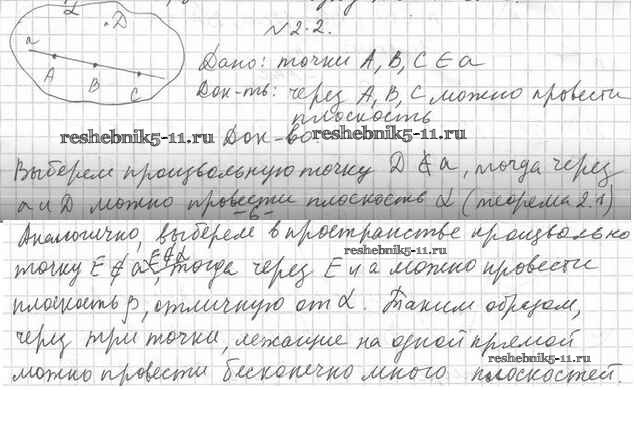 № 2.2.
α
·D
a
A
B
C
Дано: точки A, B, C ∈ a
Док-ть: через A, B, C можно провести
плоскость
reshebnik5-11.ru Док-во reshebnik5-11.ru
Выберем произвольную точку D ∉ a, тогда через
a и D можно провести плоскость α (теорема 2.1)
-6-
Аналогично, выберем в пространстве произвольно
reshebnik5-11.ru
точку E ∉ a, E ∉ α тогда через E и a можно провести
плоскость β, отличную от α. Таким образом,
через три точки, лежащие на одной прямой
reshebnik5-11.ru
можно провести бесконечно много плоскостей.